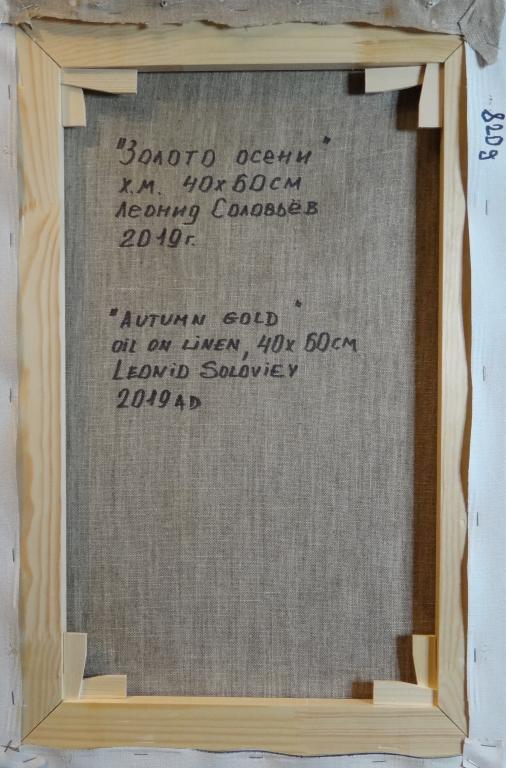 "Золото осени"
х.м. 40х60см
Леонид Соловьёв
2019г.
"AUTUMN GOLD"
OIL ON LINEN, 40x60CM
LEONID SOLOVIEV
2019 AD
820g